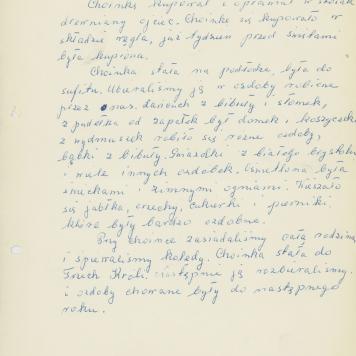 Choinkę kupował i oprawiał w stojak
drewniany ojciec. Choinkę się kupowało w
składzie węgla, już tydzień przed świętami
była kupiona.
Choinka stała na podłodze, była do
sufitu. Ubieraliśmy ją w ozdoby robione
przez nas. Łańcuch z bibuły i słomek,
z pudełka od zapałek był domek i koszyczek
z wydmuszek robiło się różne ozdoby,
bąbki z bibuły. Gwiazdki z białego brystolu
i wiele innych ozdobek. Oświetlona była
świeczkami i zimnymi ogniami. Wieszało
się jabłka, orzechy, cukierki i pierniki
które były bardzo ozdobne.
Przy choince zasiadaliśmy całą rodziną
i śpiewaliśmy kolędy. Choinka stała do
Trzech Króli następnie ją rozbieraliśmy.
i ozdoby chowane były do następnego
roku.